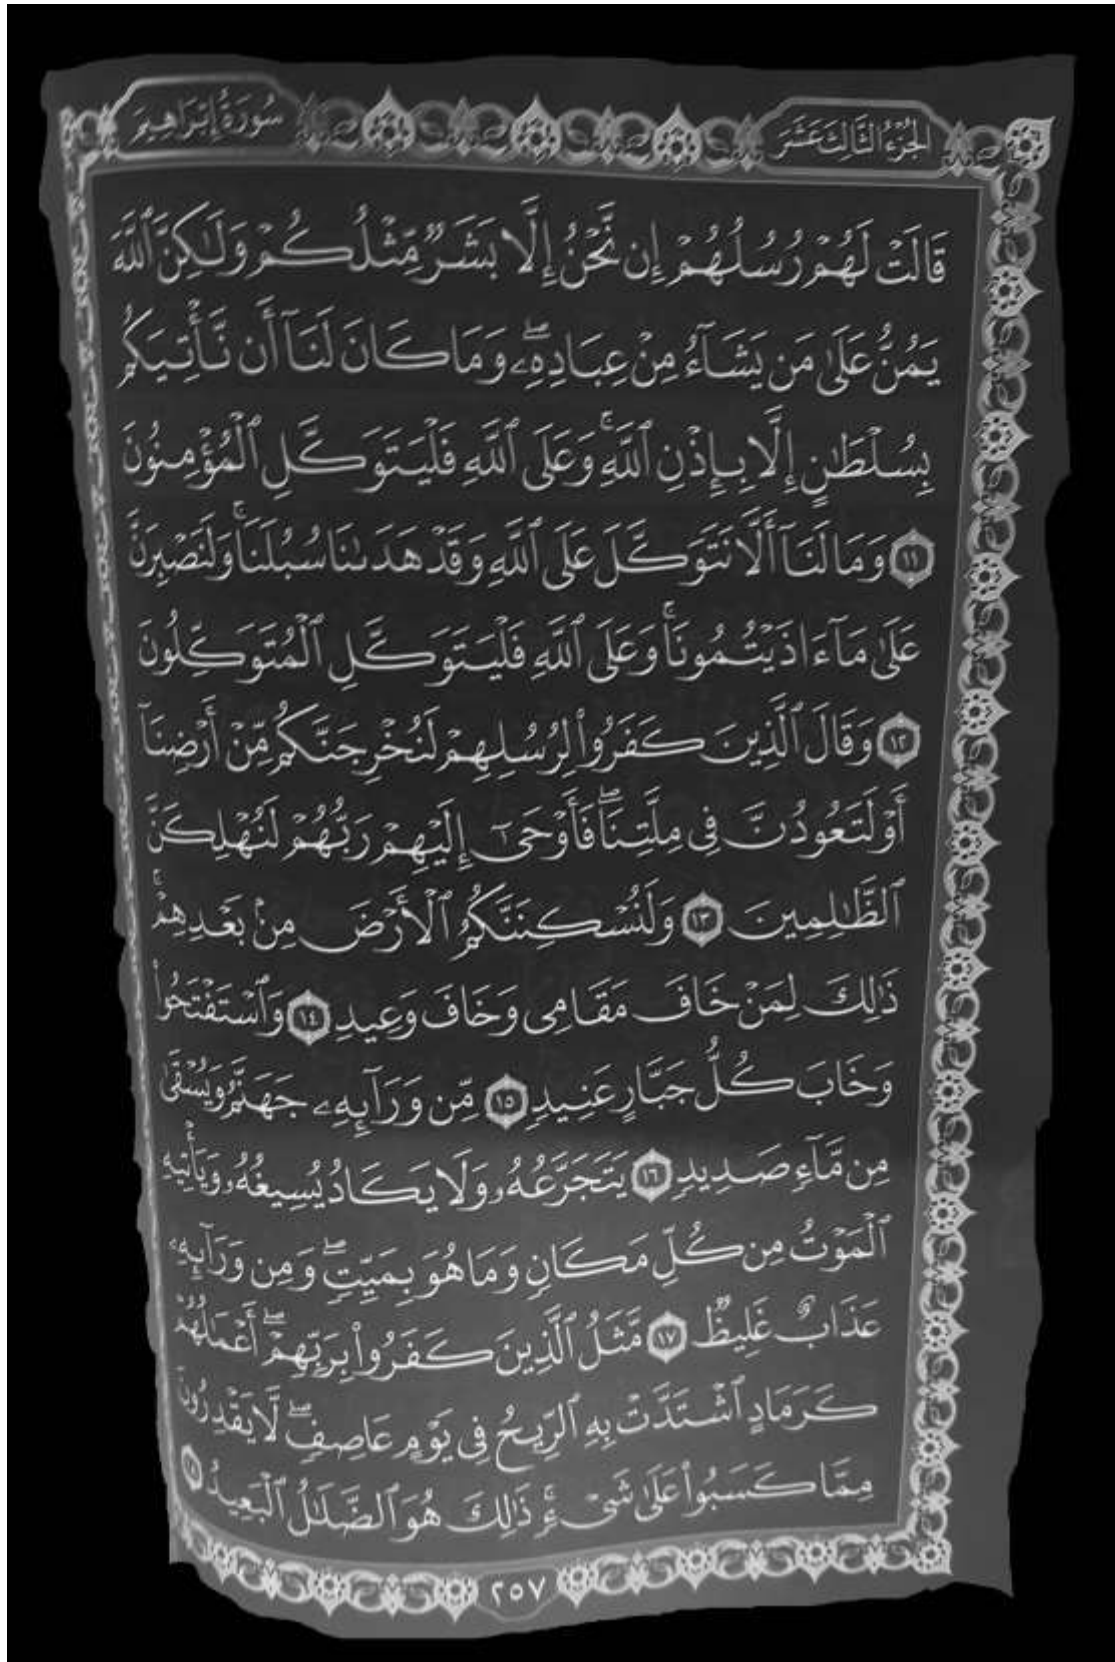 الجُزْءُ الثَّالِثَ عَشَرَ
سُورَةُ إِبْرَاهِيمَ
قَالَتْ لَهُمْ رُسُلُهُمْ إِن نَّحْنُ إِلَّا بَشَرٌ مِّثْلُكُمْ وَلَٰكِنَّ ٱللَّهَ
يَمُنُّ عَلَىٰ مَن يَشَآءُ مِنْ عِبَادِهِۦۖ وَمَا كَانَ لَنَآ أَن نَّأْتِيَكُم
بِسُلْطَٰنٍ إِلَّا بِإِذْنِ ٱللَّهِۚ وَعَلَى ٱللَّهِ فَلْيَتَوَكَّلِ ٱلْمُؤْمِنُونَ
١١ وَمَا لَنَآ أَلَّا نَتَوَكَّلَ عَلَى ٱللَّهِ وَقَدْ هَدَىٰنَا سُبُلَنَاۚ وَلَنَصْبِرَنَّ
عَلَىٰ مَآ ءَاذَيْتُمُونَاۚ وَعَلَى ٱللَّهِ فَلْيَتَوَكَّلِ ٱلْمُتَوَكِّلُونَ
١٢ وَقَالَ ٱلَّذِينَ كَفَرُوا۟ لِرُسُلِهِمْ لَنُخْرِجَنَّكُم مِّنْ أَرْضِنَآ
أَوْ لَتَعُودُنَّ فِى مِلَّتِنَاۖ فَأَوْحَىٰٓ إِلَيْهِمْ رَبُّهُمْ لَنُهْلِكَنَّ
ٱلظَّٰلِمِينَ ١٣ وَلَنُسْكِنَنَّكُمُ ٱلْأَرْضَ مِنۢ بَعْدِهِمْۚ
ذَٰلِكَ لِمَنْ خَافَ مَقَامِى وَخَافَ وَعِيدِ ١٤ وَٱسْتَفْتَحُوا۟
وَخَابَ كُلُّ جَبَّارٍ عَنِيدٍ ١٥ مِّن وَرَآئِهِۦ جَهَنَّمُ وَيُسْقَىٰ
مِن مَّآءٍ صَدِيدٍ ١٦ يَتَجَرَّعُهُۥ وَلَا يَكَادُ يُسِيغُهُۥ وَيَأْتِيهِ
ٱلْمَوْتُ مِن كُلِّ مَكَانٍ وَمَا هُوَ بِمَيِّتٍۖ وَمِن وَرَآئِهِۦ
عَذَابٌ غَلِيظٌ ١٧ مَّثَلُ ٱلَّذِينَ كَفَرُوا۟ بِرَبِّهِمْۖ أَعْمَٰلُهُمْ
كَرَمَادٍ ٱشْتَدَّتْ بِهِ ٱلرِّيحُ فِى يَوْمٍ عَاصِفٍۖ لَّا يَقْدِرُونَ
مِمَّا كَسَبُوا۟ عَلَىٰ شَىْءٍۚ ذَٰلِكَ هُوَ ٱلضَّلَٰلُ ٱلْبَعِيدُ
٢٥٧